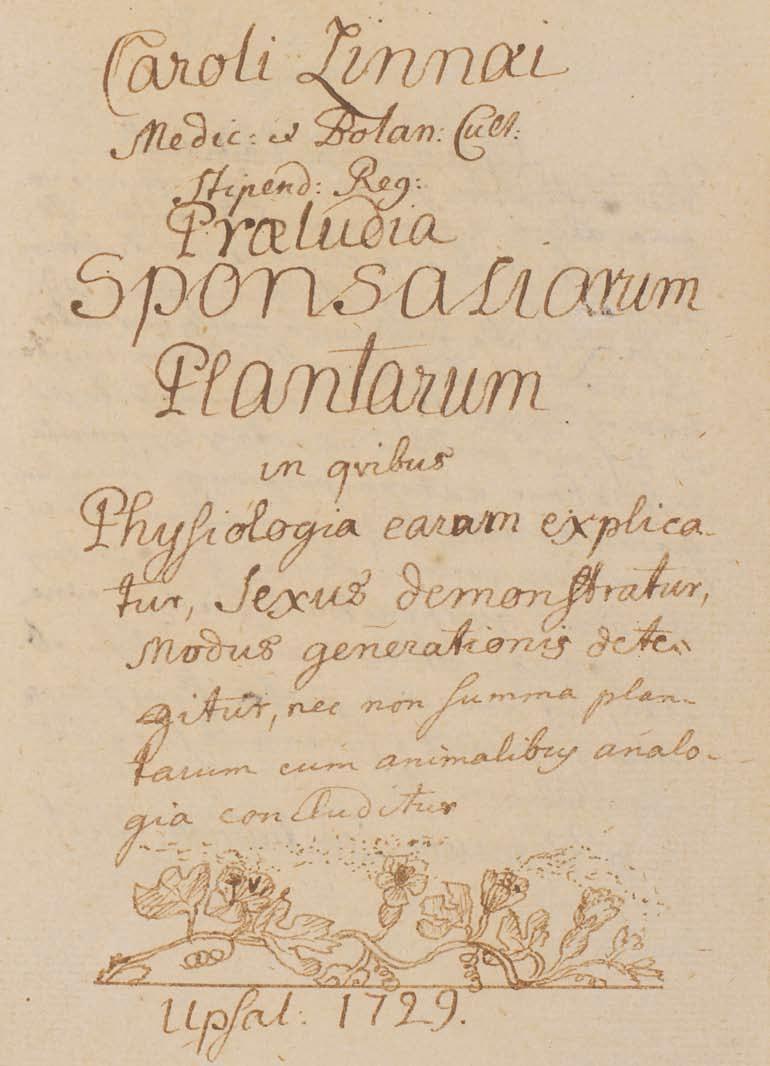 Caroli Linnæi
Medic: & Botan: Cult:
Stipend: Reg:
Præludia
Sponsaliarum
Plantarum
in qvibus
Physiologia earum explica-
tur, Sexus demonstratur,
Modus generationis dete-
gitur, nec non summa plan-
tarum cum animalibus analo-
gia concluditur
Upsal: 1729.